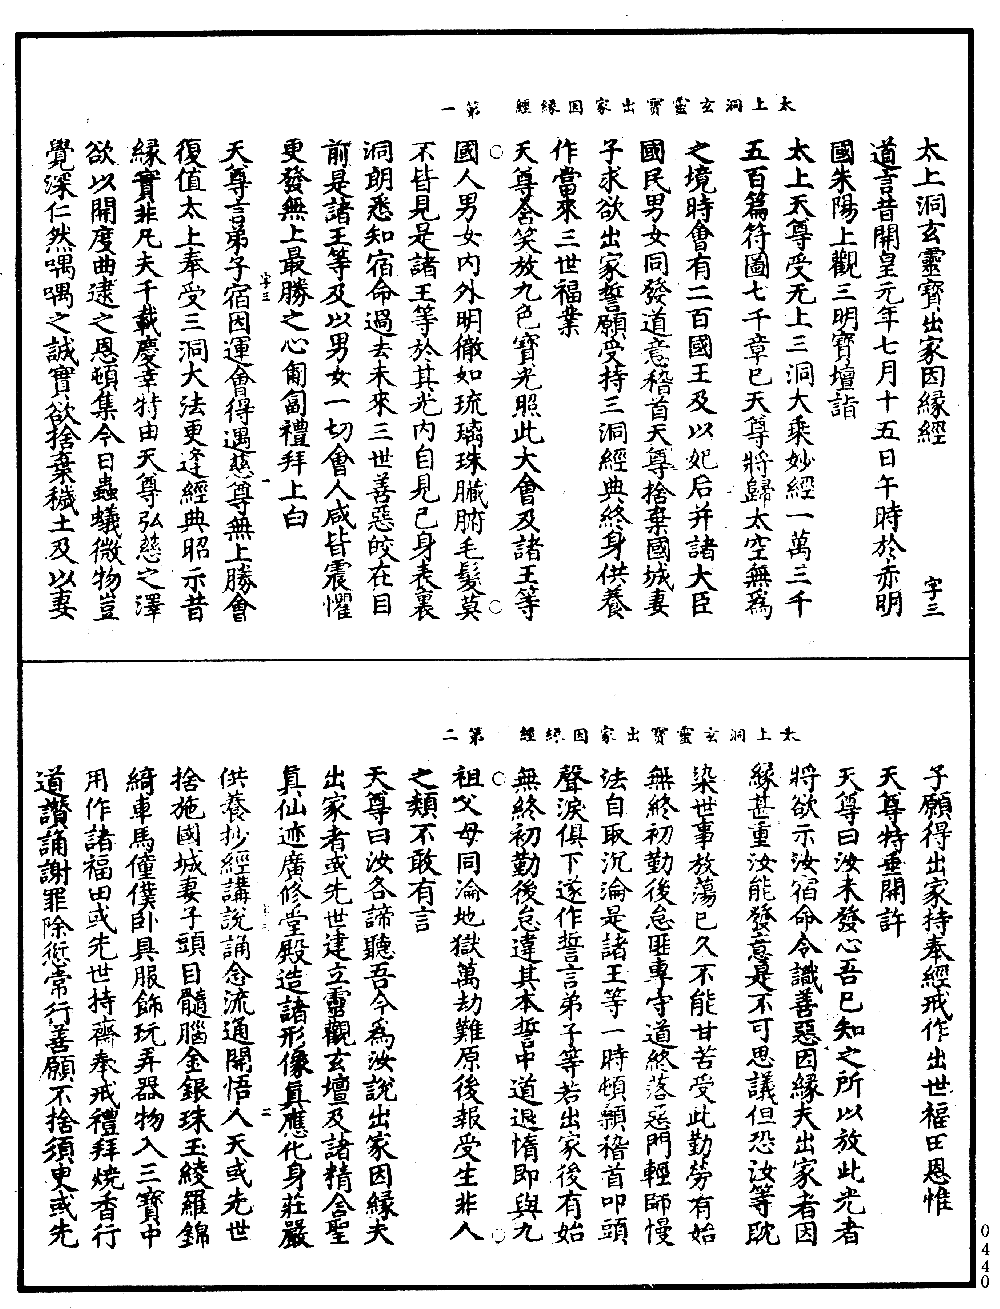 太上洞玄靈寶出家因緣經　第一
太上洞玄靈寶出家因緣經　字三
道言昔開皇元年七月十五日午時於赤明
國朱陽上觀三明寶壇詣
太上天尊受无上三洞大乘妙經一萬三千
五百篇符圖七千章已天尊將歸太空無為
之境時會有二百國王及以妃后并諸大臣
國民男女同發道意稽首天尊捨棄國城妻
子求欲出家誓願受持三洞經典終身供養
作當來三世福業
天尊含笑放九色寶光照此大會及諸王等
國人男女內外明徹如琉璃珠臟腑毛髮莫
不皆見是諸王等於其光內自見己身表裏
洞朗悉知宿命過去未來三世善惡皎在目
前是諸王等及以男女一切會人咸皆震懼
更發無上最勝之心匍匐禮拜上白
字三　一
天尊言弟子宿因運會得遇慈尊無上勝會
復值太上奉受三洞大法更逢經典昭示昔
緣實非凡夫千載慶幸特由天尊弘慈之澤
欲以開度曲逮之恩頓集今日蟲蟻微物豈
覺深仁然喁喁之誠實欲捨棄穢土及以妻
太上洞玄靈寶出家因緣經　第二
子願得出家持奉經戒作出世福田恩惟
天尊特垂開許
天尊曰汝未發心吾已知之所以放此光者
將欲示汝宿命令識善惡因緣夫出家者因
緣甚重汝能發意是不可思議但恐汝等耽
染世事放蕩已久不能甘苦受此勤勞有始
無終初勤後怠匪專守道終落惡門輕師慢
法自取沉淪是諸王等一時頓顙稽首叩頭
聲淚俱下遂作誓言弟子等若出家後有始
無終初勤後怠違其本誓中道退惰即與九
祖父母同淪地獄萬劫難原後報受生非人
之類不敢有言
天尊曰汝各諦聽吾今為汝說出家因緣夫
出家者或先世建立靈觀玄壇及諸精舍聖
真仙迹廣修堂殿造諸形像真應化身莊嚴
二
供養抄經講說誦念流通開悟人天或先世
捨施國城妻子頭目髓腦金銀珠玉綾羅錦
綺車馬僮僕臥具服飾玩弄器物入三寶中
用作諸福田或先世持齋奉戒禮拜燒香行
道讚誦謝罪除愆常行善願不捨須臾或先
0440